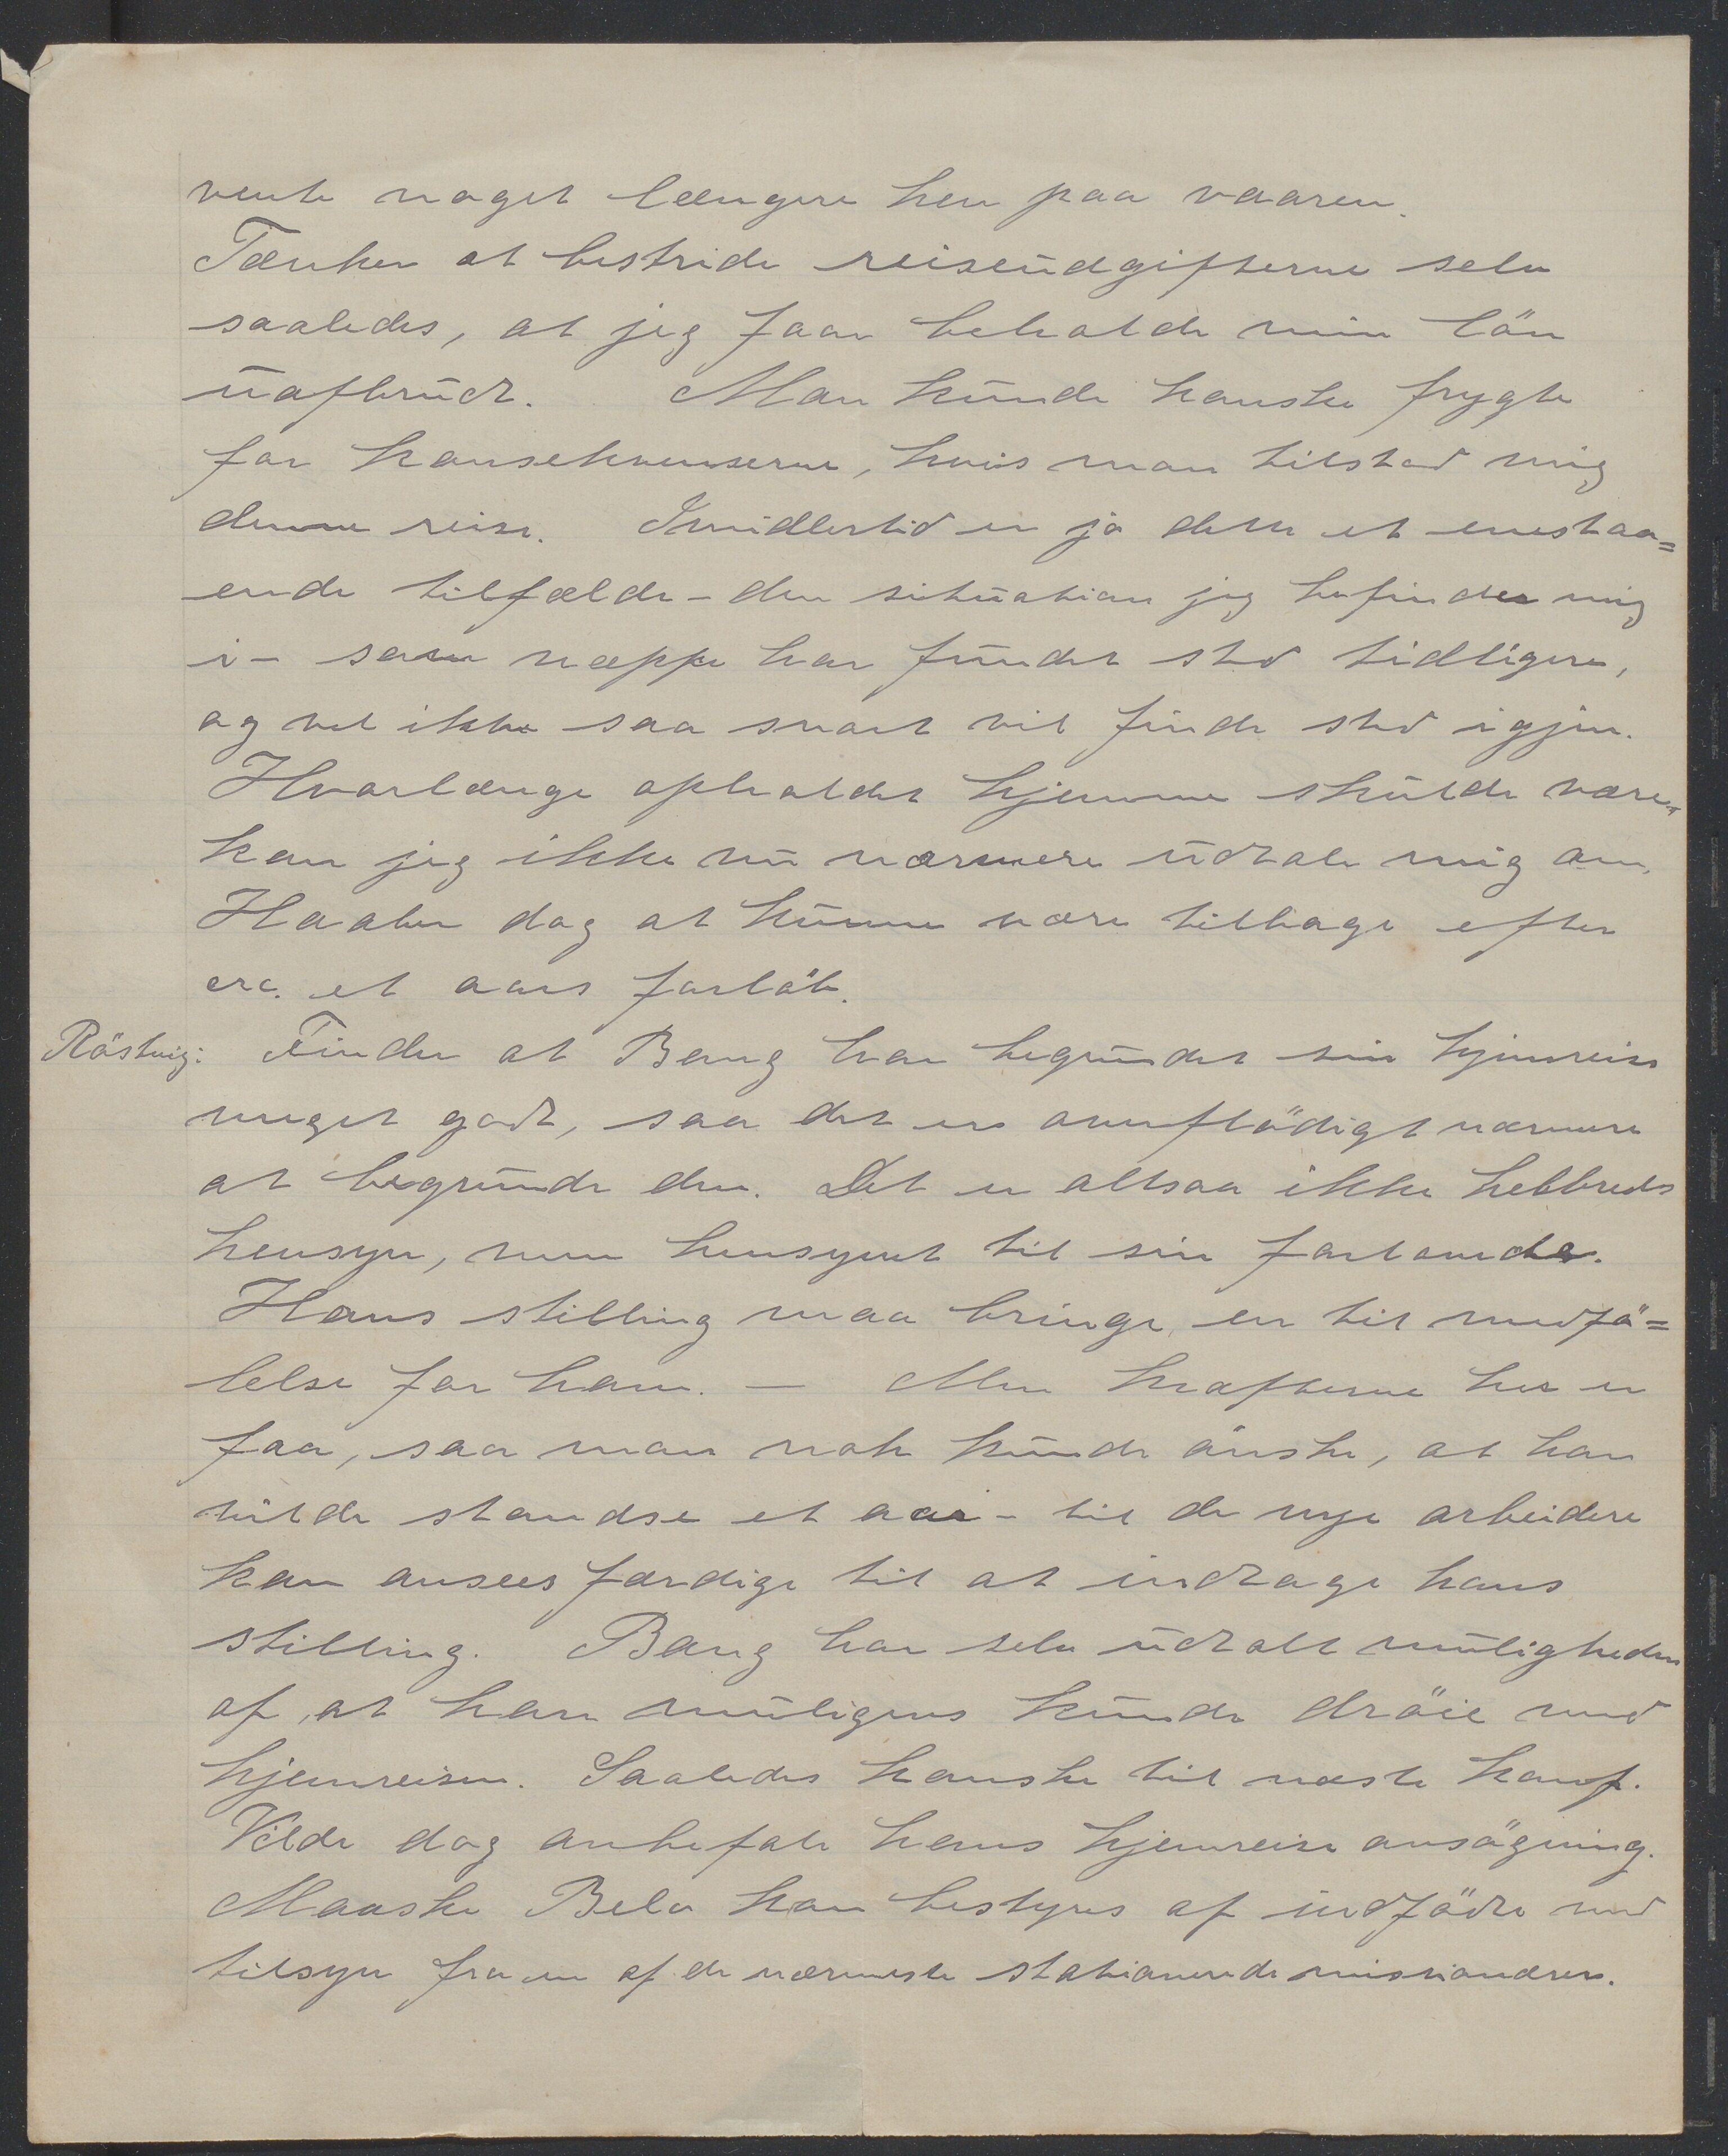 vente noget længere hen paa vaaren.
Tænker at bestride reiseudgifterne selv
saaledes, at jeg faar beholde min lön
uafbrudt. Man kunde kanske frygte
for konsekvenserne, hvis man tilstod mig
denne reise. Imidlertid er jo dette et enestaa=
ende tilfælde - den situation jeg befinder mig
i - som næppe har fundet sted tidligere,
og vel ikke saa snart vil finde sted igjen.
Hvorlænge opholdet hjemme skulde være,
kan jeg ikke nu nærmere udtale mig om.
Haaber dog at kunne være tilbage efter
crc. et aars forløb.
Röstvig: Finder at Bang har begrundet sin hjemreise
meget godt, saa det er overflödigt nærmere
at begrunde den. Det er altsaa ikke helbreds
hensyn, men hensynet til sin forlovede.
Hans stilling maa bringe en til medfö=
lelse for ham. — Men kræfterne her er
faa, saa man nok kunde önske, at han
vilde standse et aar - til de nye arbeidere
kan ansees færdige til at indtage hans
stilling. Bang har selv udtalt muligheden
af, at han muligens kunde dröie med
hjemreisen. Saaledes kanske til næste konf.
Vilde dog anbefale hans hjemreise ansögning.
Maaske Belo kan bestyres af indfödte med
tilsyn fra en af de nærmeste stationerede missionærer.